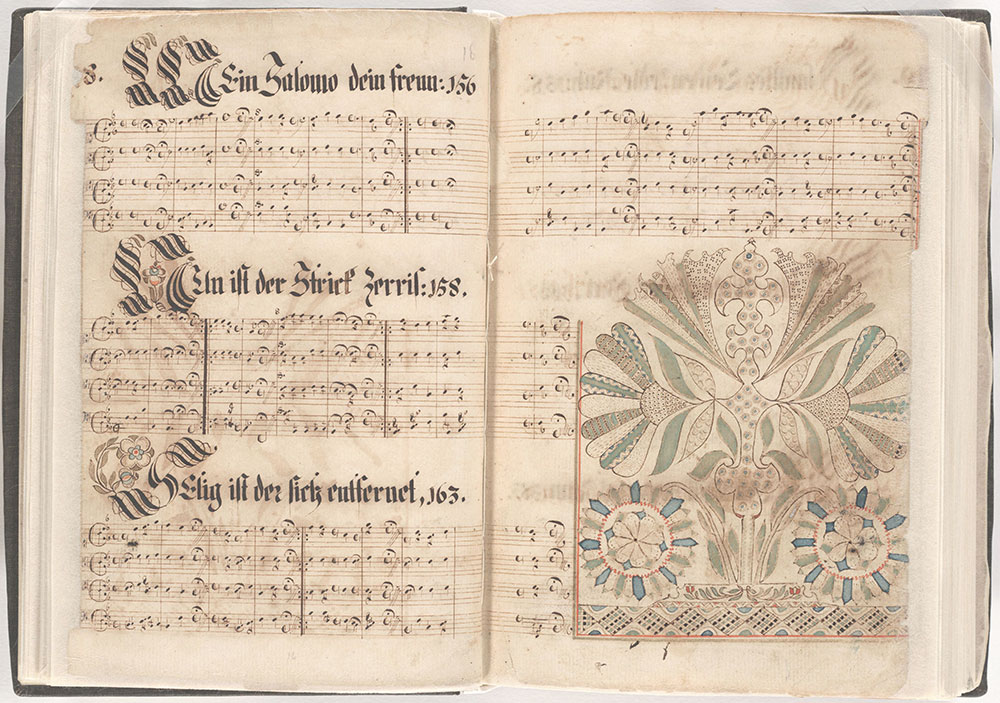 8. MEin Salomo dein freun: 156
16
NUn ist der Strick zerris: 158.
SElig ist der sich entfernet, 163.